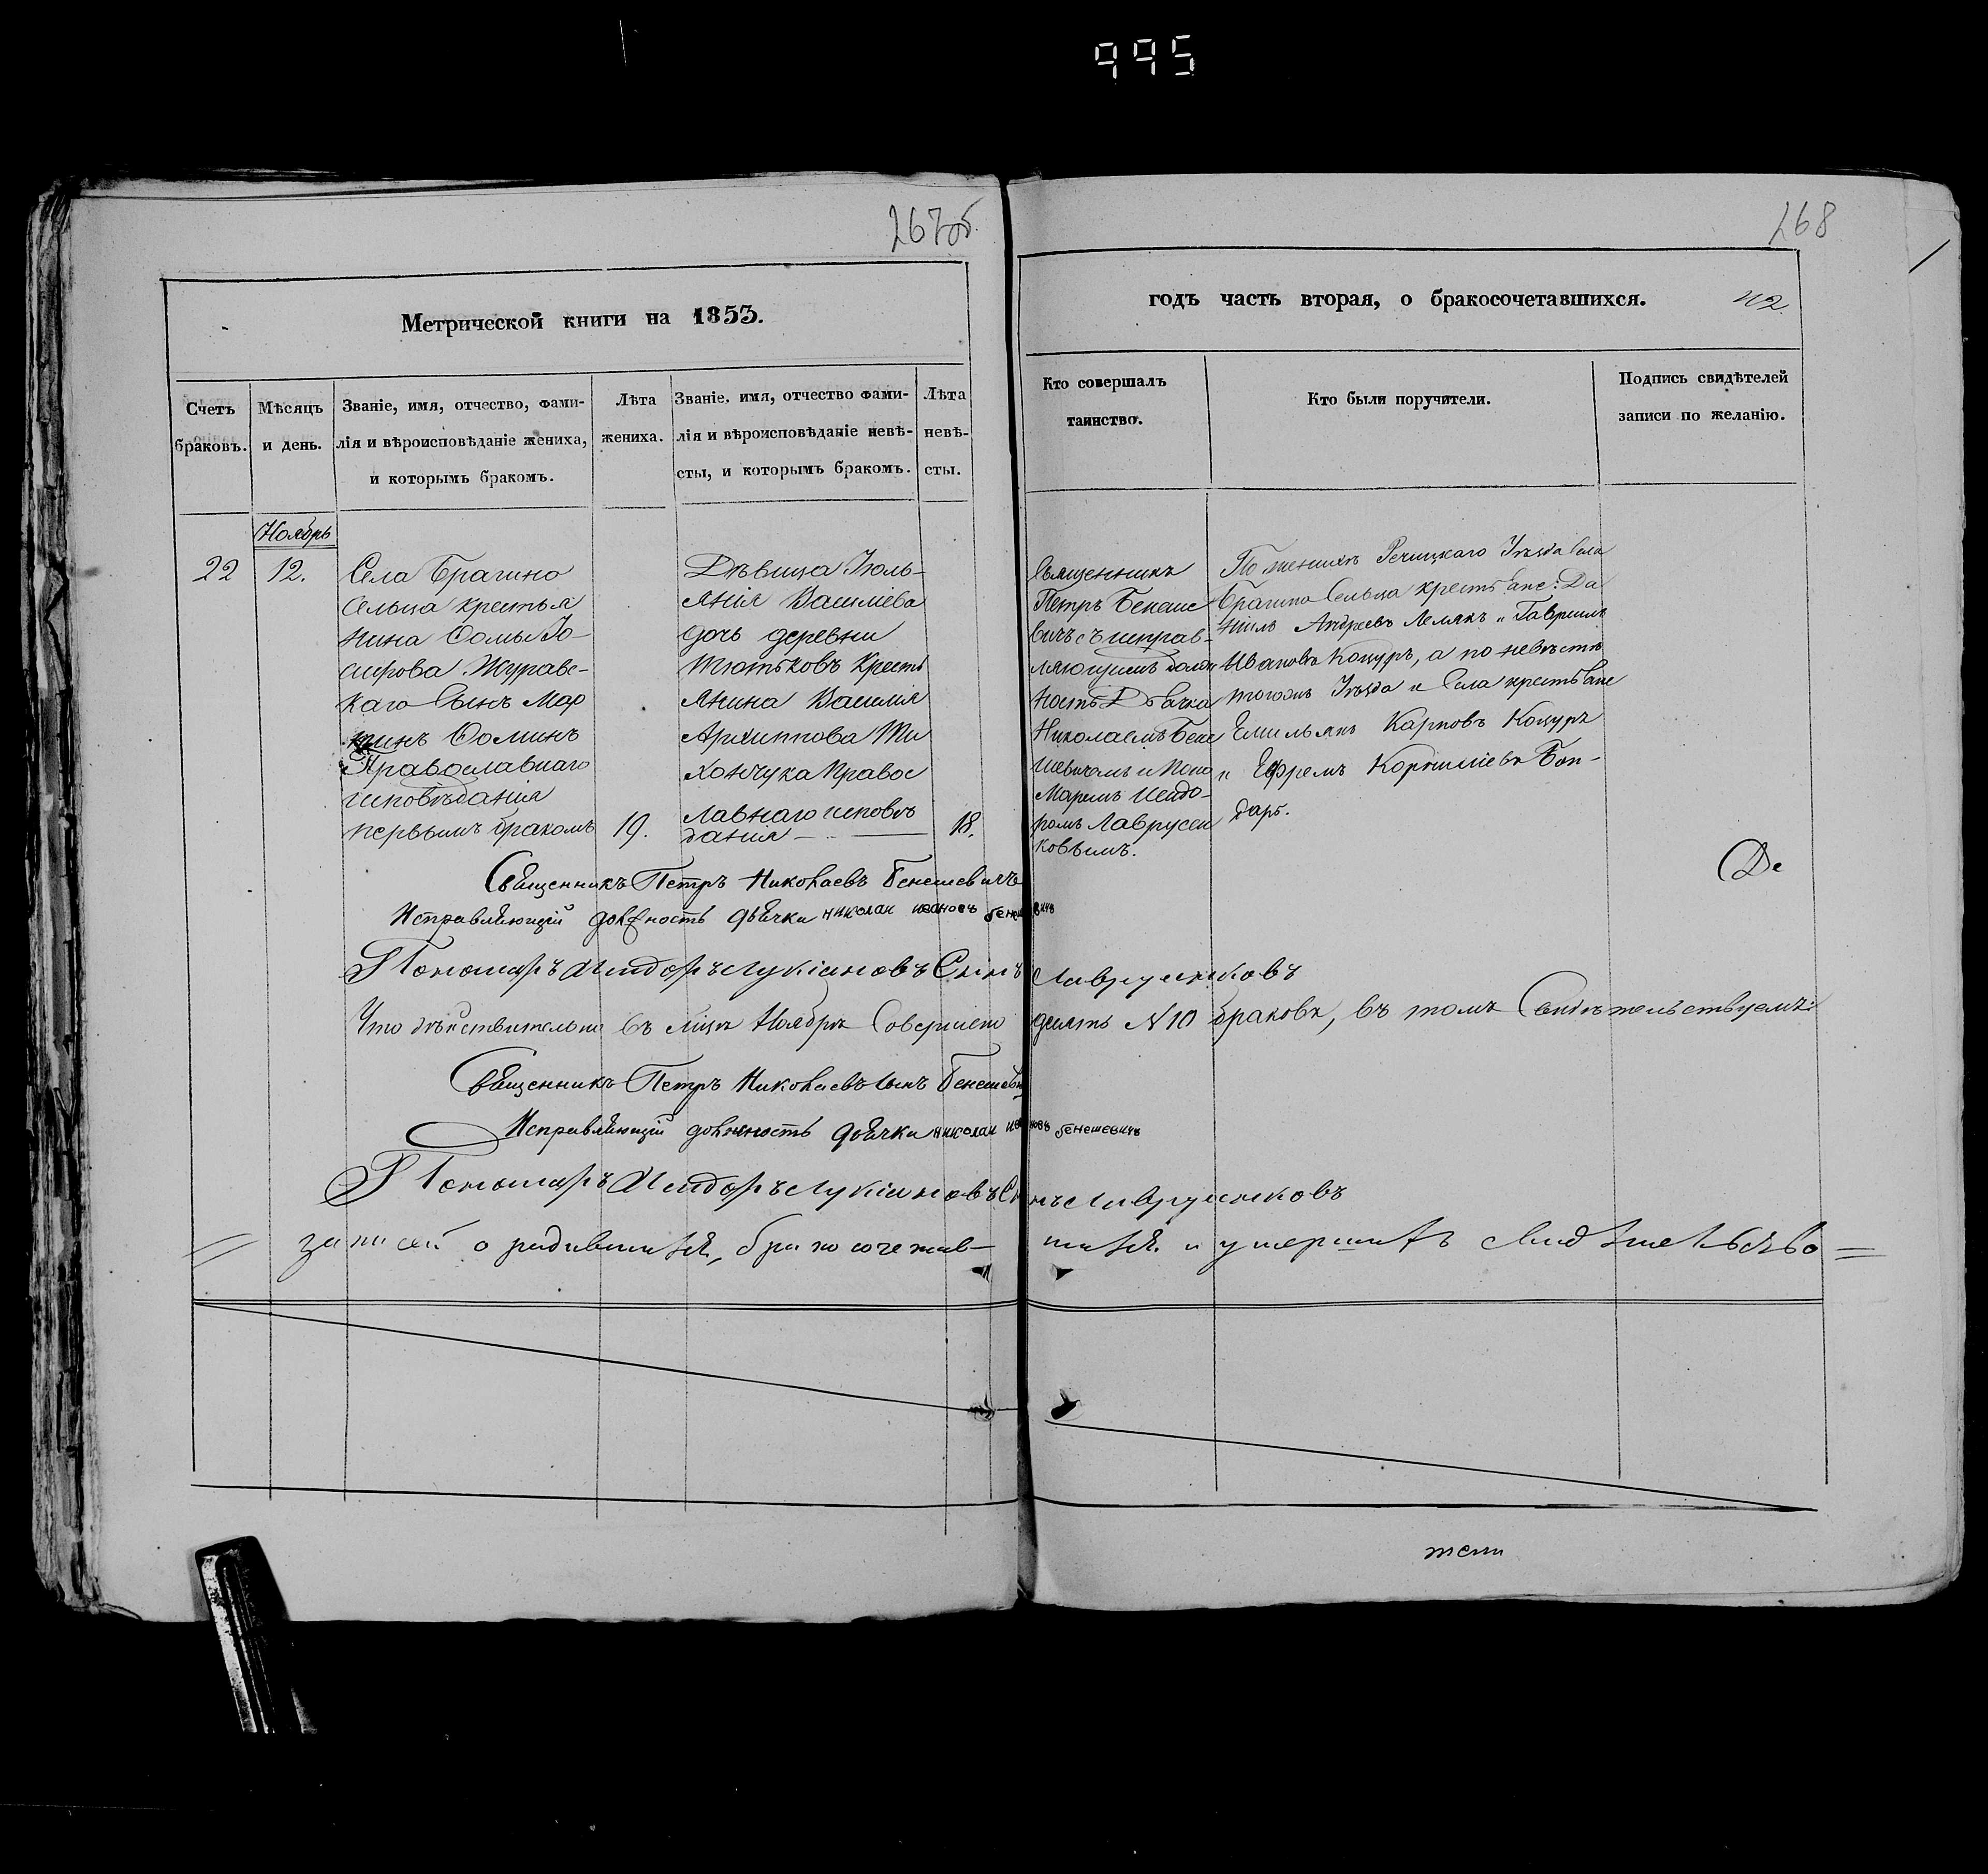 995
267об.
268
Метрической книги на 1853.
годъ часть вторая, о бракосочетавшихся.
42.
Счетъ
браковъ.
Мѣсяцъ
и день.
Званіе, имя, отчество, фами-
лія и вѣроисповѣданіе жениха,
и которымъ бракомъ.
Лѣта
жениха.
Званіе, имя, отчество фами-
лія и вѣроисповѣданіе невѣ-
сты, и которымъ бракомъ.
Лѣта
невѣ-
сты.
Кто совершалъ
таинство.
Кто были поручители.
Подпись свидѣтелей
записи по желанію.
Ноябрь
22
12.
Села Брагино
Сельца крестья
нина Фомы Іо-
сифова Журавс-
каго Сынъ Мар
тинъ Фоминъ
Православнаго
исповѣданія
первымъ бракомъ
19.
Дѣвица Іюль-
янія Василіева
дочь деревни
Тютьковъ Кресть
янина Василія
Архиппова Ти
хончука Правос
лавнаго исповѣ
данія
18.
Священникъ
Петръ Бенеше
вичъ съ исправ-
ляющимъ долж
ность Дьячка
Николаемъ Бене
шевичемъ и Поно
маремъ Исидо-
ромъ Лаврусен
ковымъ.
По женихѣ Речицкаго Уѣзда Села
Брагино Сельца крестьяне: Да
ніилъ Андреевъ Лемякъ и Гавріилъ
Ивановъ Коцуръ, а по невѣстѣ
тогожъ Уѣзда и Села крестьяне
Емильянъ Карповъ Коцуръ
и Ефремъ Корниліевъ Бон-
дарь.
Де
Священникъ Петръ Николаевъ Бенешевичъ
Исправляющій должность дьячка николай ивановъ бенешевичъ
Пономаръ Исидоръ Лукіановъ Сынъ Лаврусенковъ
Что дѣйствительно въ мѣсяцѣ Ноябрѣ Совершено десять N 10 браковъ, въ томъ Свидѣтельствуемъ:
Священникъ Петръ Николаевъ Сынъ Бенешевичъ
Исправляющій должность дьячка николай ивановъ бенешевичъ
Пономаръ Исидоръ Лукіановъ Сынъ Лаврусенковъ
записей о родившихся, бракосочетав- шихся и умершихъ свидѣтельство